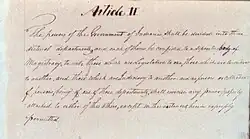 Article II
The powers of the Government of Indiana shall be divided into three
distinct departments, and each of them be confided to a separate body of
Magistracy, to wit, those which are Legislative to one, those which are Executive
to another, and those which are Judiciary to another: And no person or collection
of persons, being of one of those departments, shall exercise any power properly
attached to either of the others, except in the instances herein expressly
permitted.